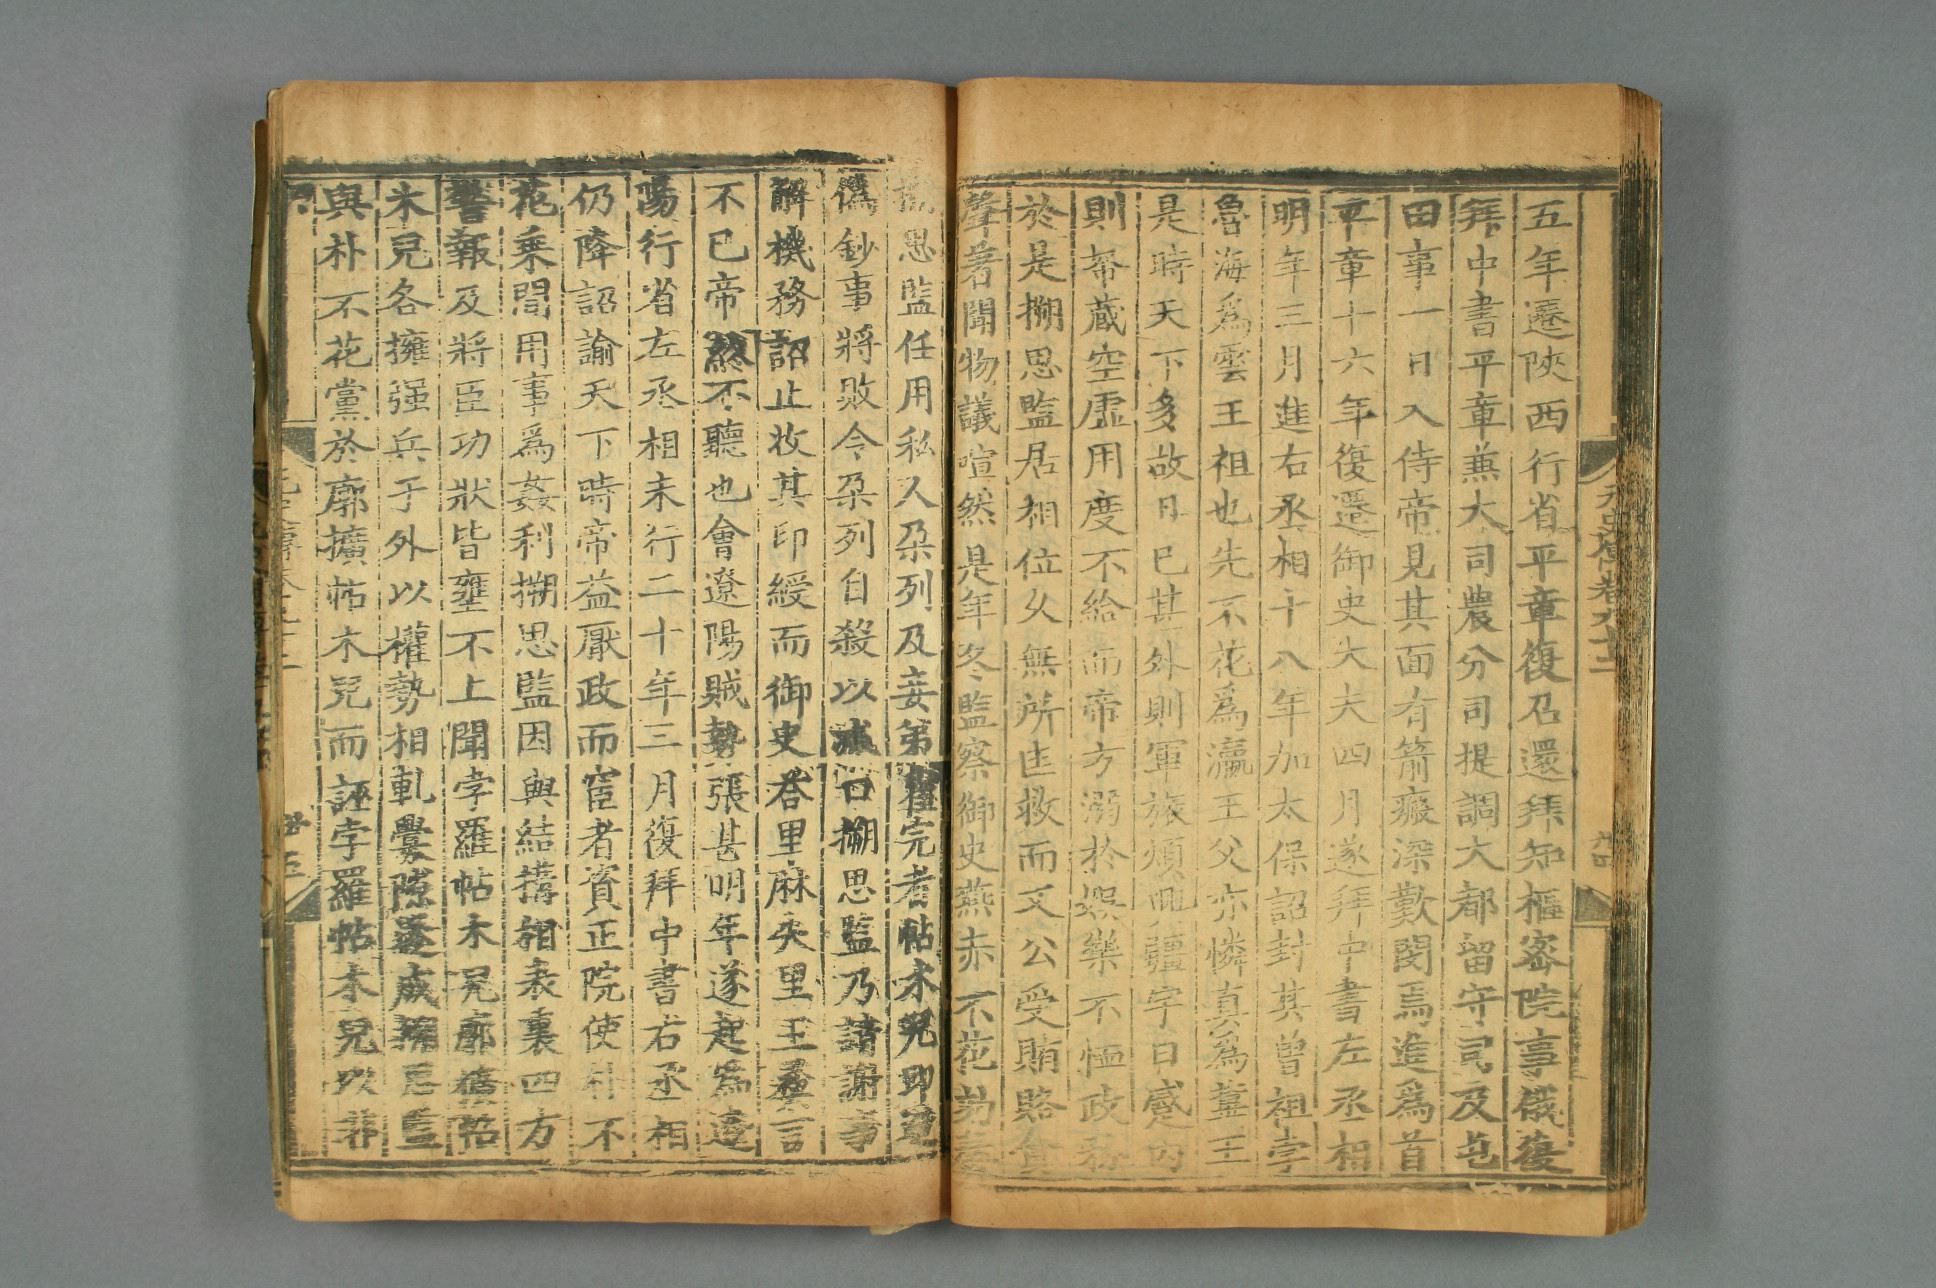 五年遷陝西行省平章復召還拜知樞密院事俄復
拜中書平章兼大司農分司提調大都留守司及屯
田事一日入侍帝見其面有箭瘢深歎閔焉進爲首
平章十六年復遷御史大夫四月遂拜中書左丞相
明年三月進右丞相十八年加太保詔封其曾祖孛
魯海爲雲王祖也先不花爲瀛王父亦憐真爲冀王
是時天下多故日已甚外則軍旅煩興疆宇日蹙內
則帑藏空虛用度不給而帝方溺於娛樂不恤政務
於是搠思監居相位久無所匡救而又公受賄賂貪
聲著聞物議喧然是年冬監察御史燕赤不花劾
思監任用私人朶列及妾弟崔完者帖木兒印造
僞鈔事將敗令朶列自殺以滅口搠思監乃請謝事
解機務詔止收其印綬而御史荅里麻失里王彝言
不已帝終不聽也會遼陽賊勢張甚明年遂起爲遼
陽行省左丞相未行二十年三月復拜中書右丞相
仍降詔諭天下時帝益厭政而宦者資正院使朴不
花乘間用事爲姦利搠思監因與結構相表裏四方
警報及將臣功狀皆壅不上聞孛羅帖木兒廓擴帖
木兒各擁强兵于外以權勢相軋釁隙遂成搠思監
與朴不花黨於廓擴帖木兒而誣孛羅帖木兒以非